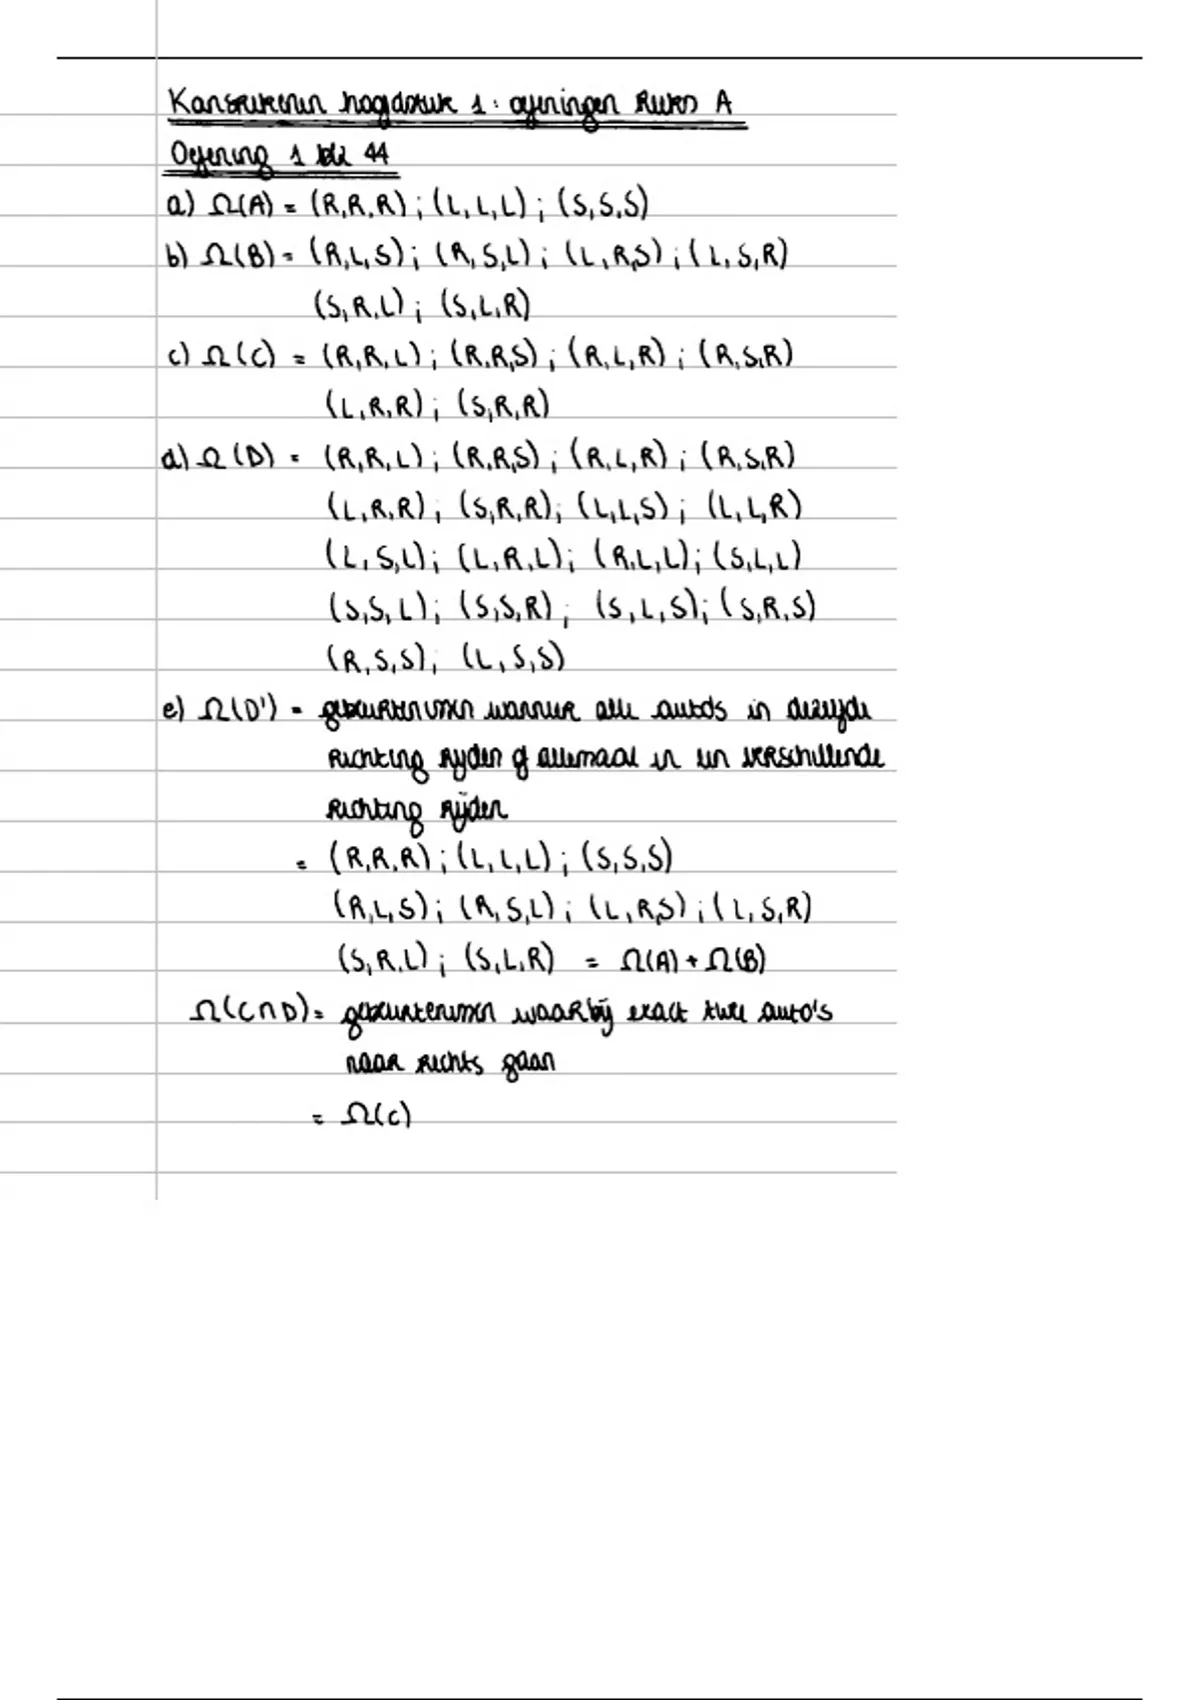 Kansrekenen hoofdstuk 1: oefeningen Reeks A
Oefening 1 blz 44
a) Ω(A) = (R,R,R) ; (L,L,L) ; (S,S,S)
b) Ω(B) = (R,L,S) ; (R,S,L) ; (L,R,S) ; (L,S,R)
(S,R,L) ; (S,L,R)
c) Ω(C) = (R,R,L) ; (R,R,S) ; (R,L,R) ; (R,S,R)
(L,R,R) ; (S,R,R)
d) Ω(D) = (R,R,L) ; (R,R,S) ; (R,L,R) ; (R,S,R)
(L,R,R) ; (S,R,R) ; (L,L,S) ; (L,L,R)
(L,S,L) ; (L,R,L) ; (R,L,L) ; (S,L,L)
(S,S,L) ; (S,S,R) ; (S,L,S) ; (S,R,S)
(R,S,S) ; (L,S,S)
e) Ω(D') = gebeurtenissen wanneer alle auto's in dezelfde
richting rijden of allemaal in een verschillende
richting rijden
= (R,R,R) ; (L,L,L) ; (S,S,S)
(R,L,S) ; (R,S,L) ; (L,R,S) ; (L,S,R)
(S,R,L) ; (S,L,R) = Ω(A) + Ω(B)
Ω(C∩D) = gebeurtenissen waarbij exact twee auto's
naar rechts gaan
= Ω(C)